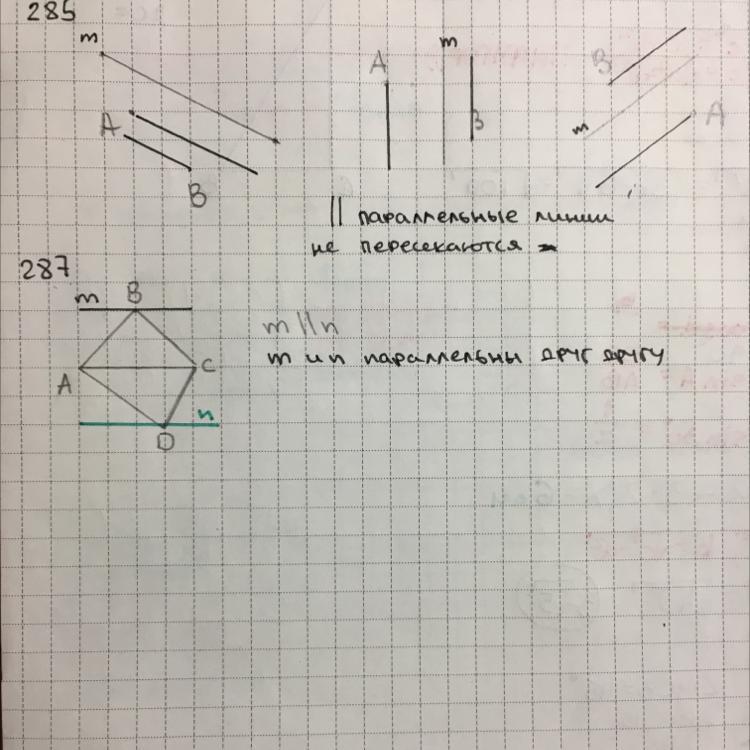 285
m
A
B
A
m
B
B
m
A
|| параллельные линии
не пересекаются
287
m B
A
C
n
D
m||n
m и n параллельны друг другу